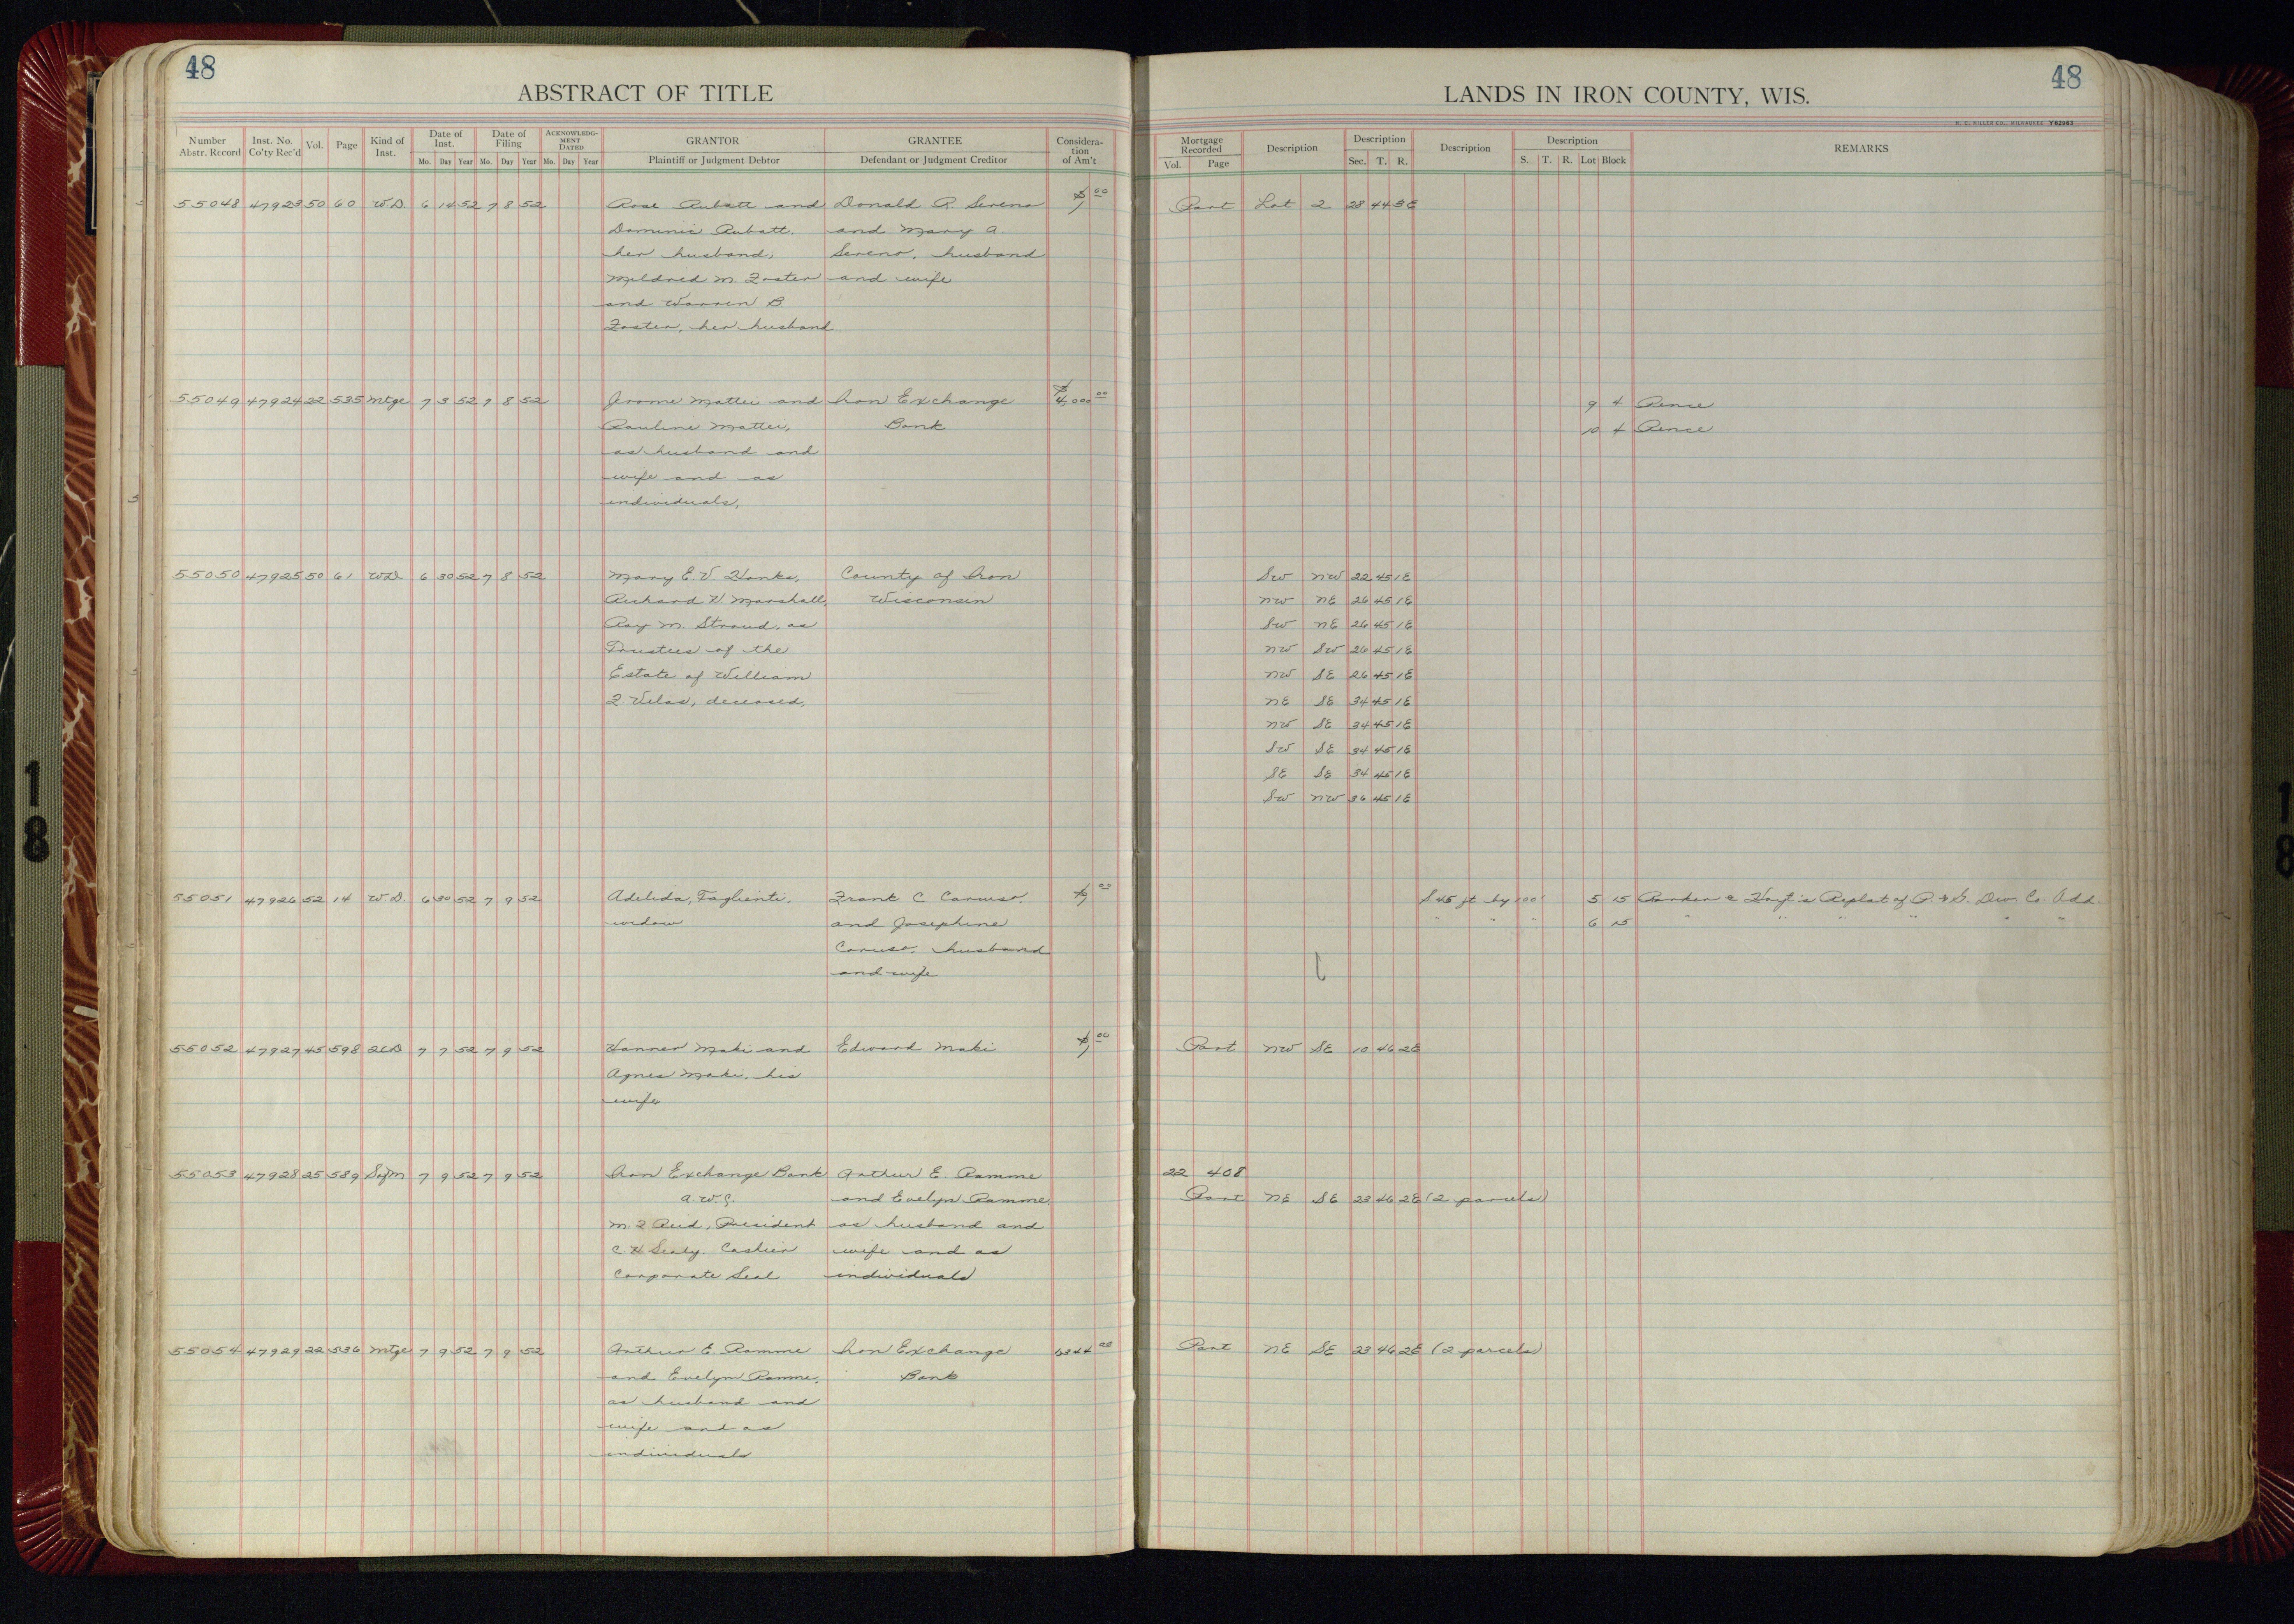 48
48
ABSTRACT OF TITLE
LANDS IN IRON COUNTY, WIS.
H. C. MILLER CO., MILWAUKEE Y62963
Number Abstr. Record
Inst. No. Co'ty Rec'd
Vol.
Page
Kind of Inst.
Date of Inst.
Mo. Day Year
Date of Filing
Mo. Day Year
ACKNOWLEDG-MENT DATED
Mo. Day Year
GRANTOR
Plaintiff or Judgment Debtor
GRANTEE
Defendant or Judgment Creditor
Considera-tion of Am't
Mortgage Recorded
Vol. Page
Description
Description
Sec. T. R.
Description
Description
S. T. R. Lot Block
REMARKS
55048 47923 50 60 W.D. 6 14 52 7 8 52 Rose Rubatt and Donald R. Sereno $1 00 Part Lot 2 28 44 3E
Dominic Rubatt, and Mary A.
her husband, Sereno, husband
Mildred M. Foster and wife
and Warren B.
Foster, her husband
55049 47924 22 535 Mtge 7 3 52 7 8 52 Jerome Mattei and Iron Exchange $4,000 00 9 4 Pence
Pauline Mattei, Bank 10 4 Pence
as husband and
wife and as
individuals,
55050 47925 50 61 WD 6 30 52 7 8 52 Mary E. V. Hanks, County of Iron SW NW 22 45 1E
Richard H. Marshall, Wisconsin NW NE 26 45 1E
Ray M. Stroud, as SW NE 26 45 1E
Trustees of the NW SW 26 45 1E
Estate of William NW SE 26 45 1E
F. Vilas, deceased, NE SE 34 45 1E
NW SE 34 45 1E
SW SE 34 45 1E
SE SE 34 45 1E
SW NW 36 45 1E
55051 47926 52 14 W.D. 6 30 52 7 9 52 Adelida Taglienti, Frank C Caruso, $1 00 S 45 ft by 100' 5 15 Replat of Co. Add.
widow and Josephine " " " 6 15 " " " " " "
Caruso, husband
and wife
55052 47927 45 598 QCD 7 7 52 7 9 52 Hanner Maki and Edward Maki $1 00 Part NW SE 10 46 2E
Agnes Maki, his
wife
55053 47928 25 589 Sat M 7 9 52 7 9 52 Iron Exchange Bank Arthur E. Ramme 22 408
and Evelyn Ramme, Part NE SE 23 46 2E (2 parcels)
M. F. Reid, President as husband and
C. H. Sealy. Cashier wife and as
Corporate Seal individuals
55054 47929 22 536 Mtge 7 9 52 7 9 52 Arthur E. Ramme Iron Exchange Part NE SE 23 46 2E (2 parcels)
and Evelyn Ramme, Bank
as husband and
wife and as
individuals
18
18